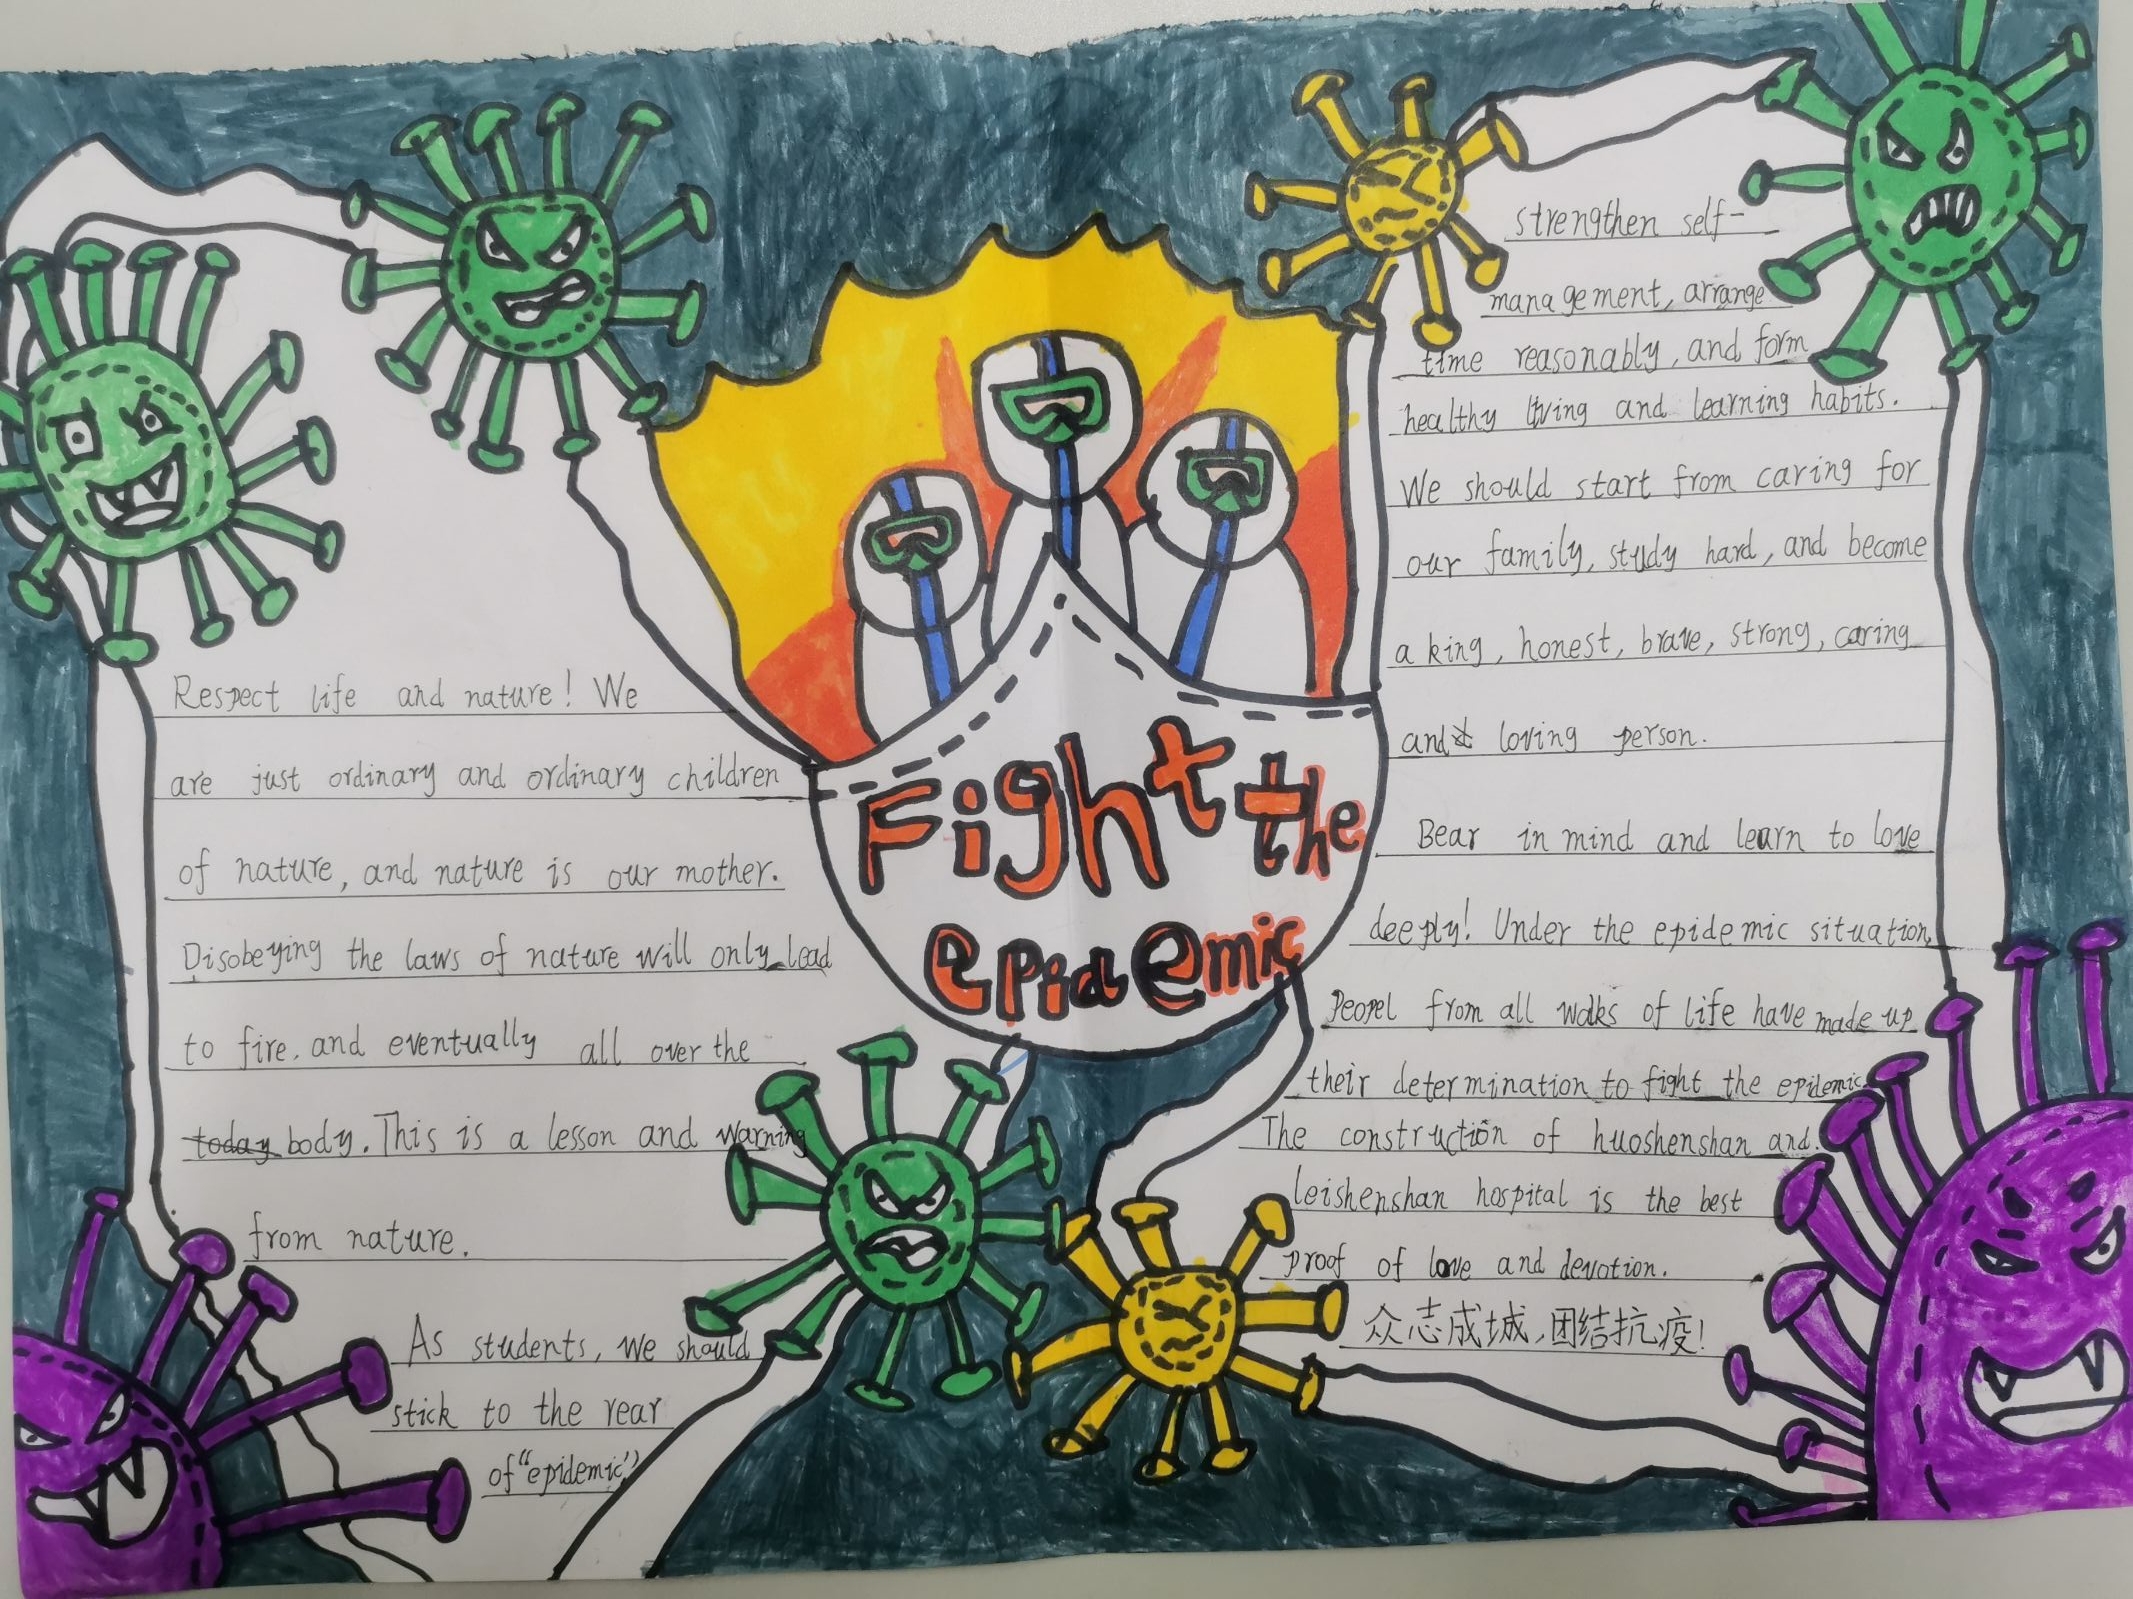 Respect life and nature! We
are just ordinary and ordinary children
of nature, and nature is our mother.
Disobeying the laws of nature will only lead
to fire, and eventually all over the
today body. This is a lesson and warning
from nature.
As students, we should
stick to the rear
of "epidemic"
Fight the
epidemic
strengthen self-
management, arrange
time reasonably, and form
healthy living and learning habits.
We should start from caring for
our family, study hard, and become
a king, honest, brave, strong, caring
and loving person.
Bear in mind and learn to love
deeply! Under the epidemic situation,
Peopel from all walks of life have made up
their determination to fight the epidemic
The construction of huoshenshan and
leishenshan hospital is the best
proof of love and devotion.
众志成城,团结抗疫!